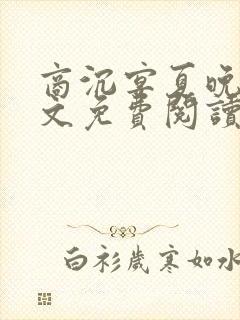 商沉宴夏晚
文免費閱讀
白衫歲寒如水